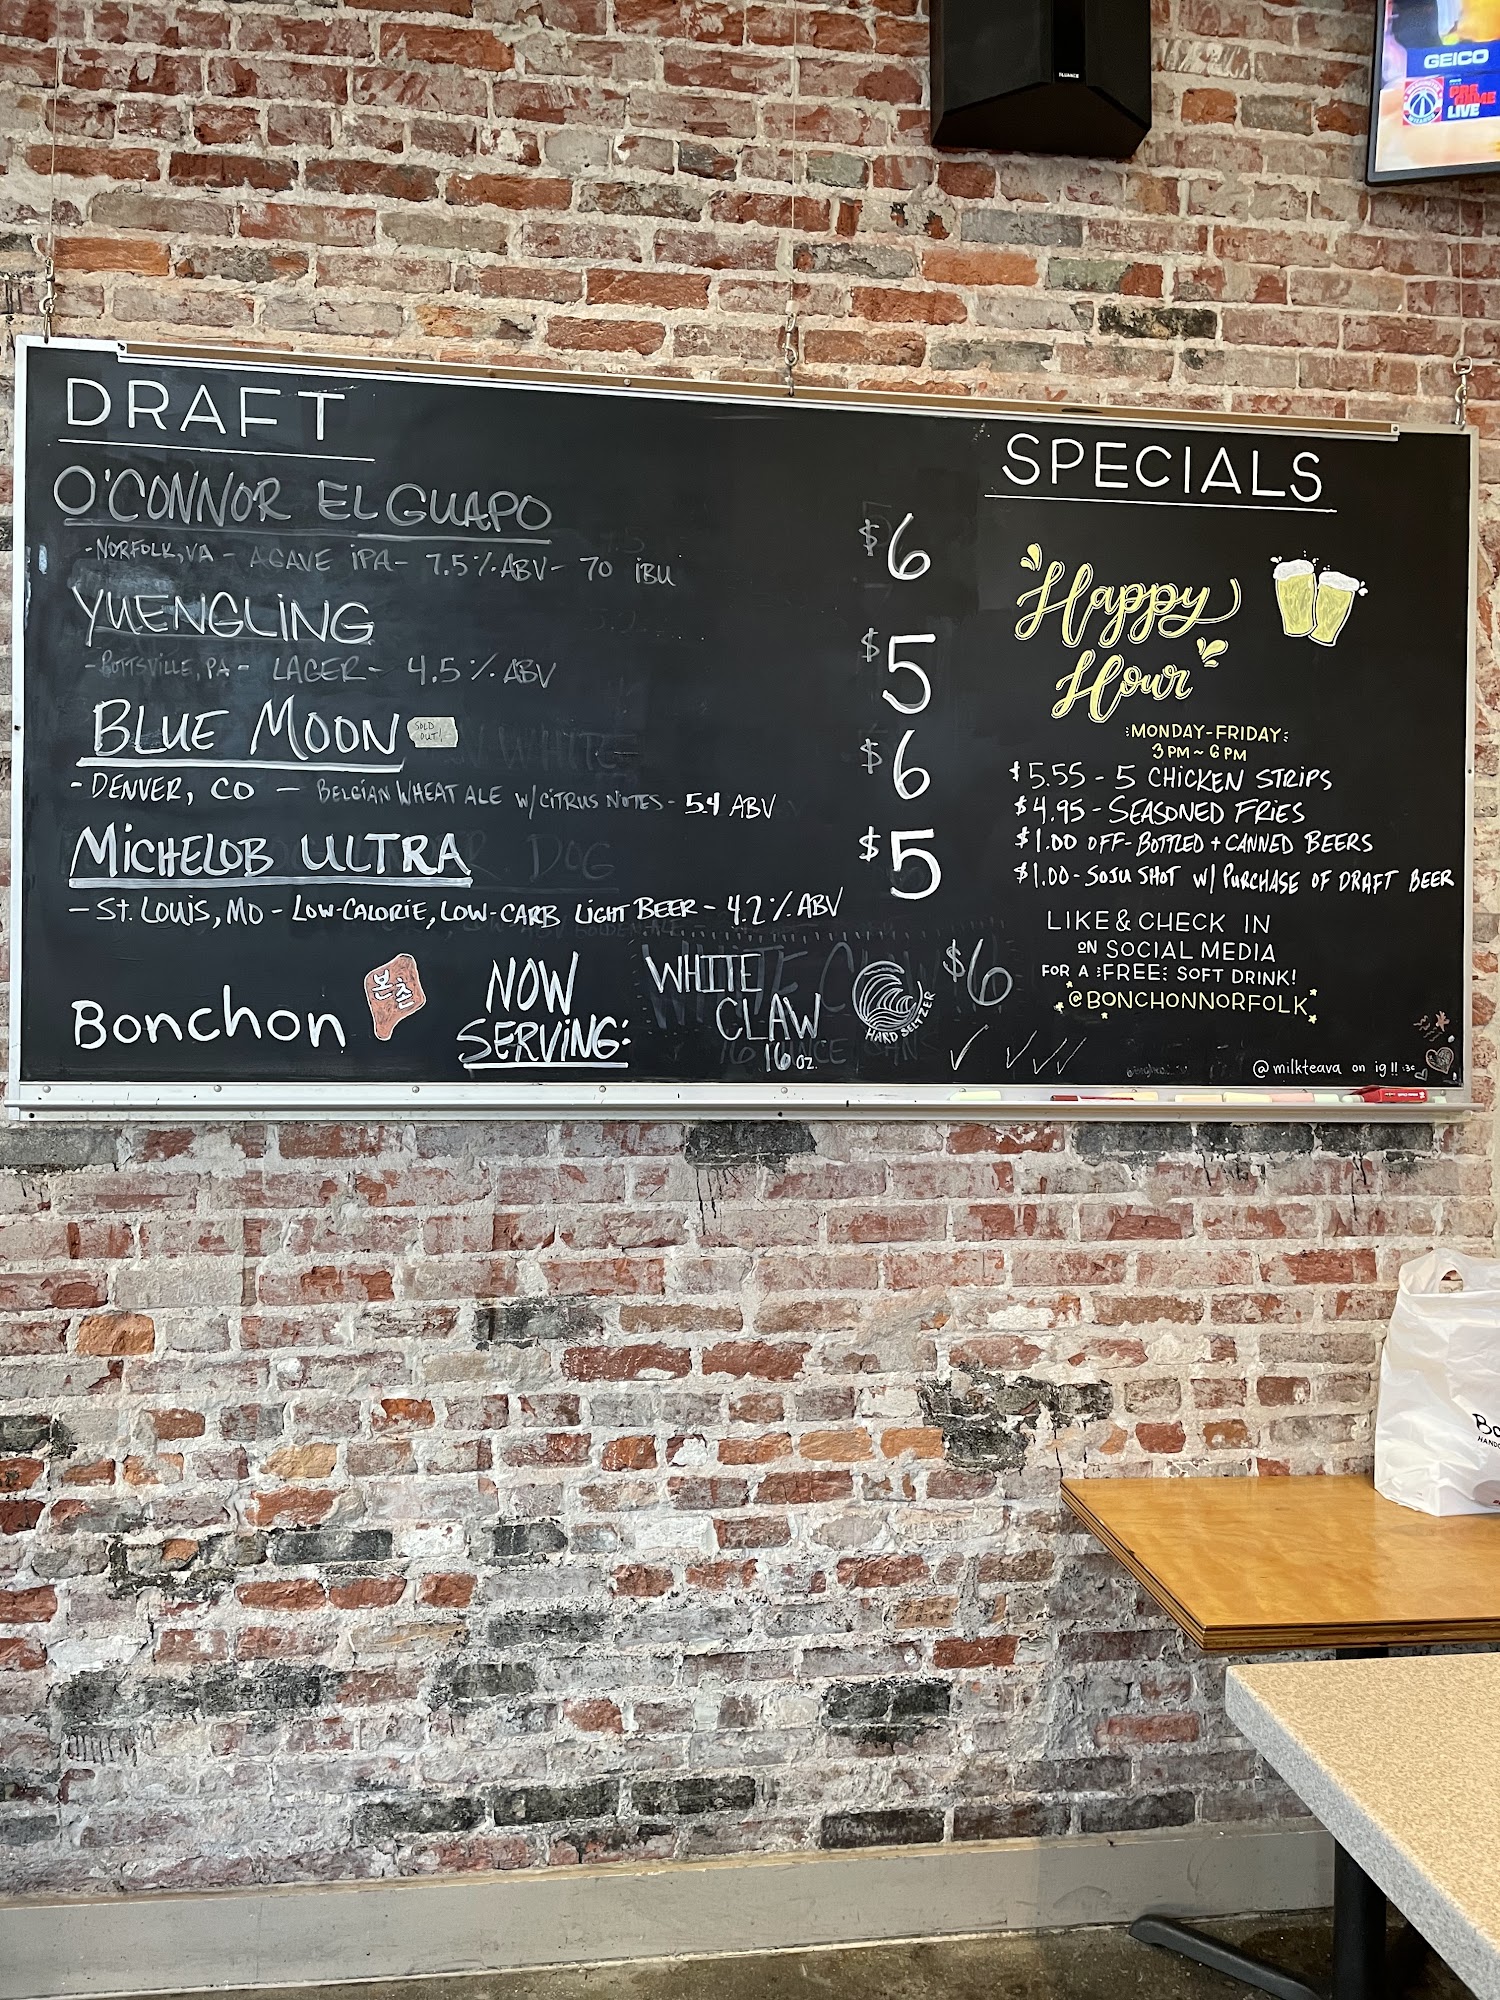 GEICO
PRE
GAME
LIVE
DRAFT
O'CONNOR EL GUAPO
-NORFOLK, VA - AGAVE IPA- 7.5% ABV- 70 IBU
$6
YUENGLING
-POTTSVILLE, PA - LAGER - 4.5% ABV
$5
BLUE MOON
SOLD
OUT!
- DENVER, CO - BELGIAN WHEAT ALE W/CITRUS NOTES - 5.4 ABV
$6
MICHELOB ULTRA
- ST. LOUIS, MO - LOW-CALORIE, LOW-CARB LIGHT BEER - 4.2% ABV
$5
Bonchon
본촌
NOW
SERVING:
WHITE
CLAW
16 OZ.
HARD SELTZER
$6
SPECIALS
Happy
Hour
MONDAY-FRIDAY
3 PM ~ 6 PM
$5.55 - 5 CHICKEN STRIPS
$4.95 - SEASONED FRIES
$1.00 OFF - BOTTLED + CANNED BEERS
$1.00 - SOJU SHOT W/ PURCHASE OF DRAFT BEER
LIKE & CHECK IN
ON SOCIAL MEDIA
FOR A FREE SOFT DRINK!
@BONCHONNORFOLK
@milkteava on ig!!